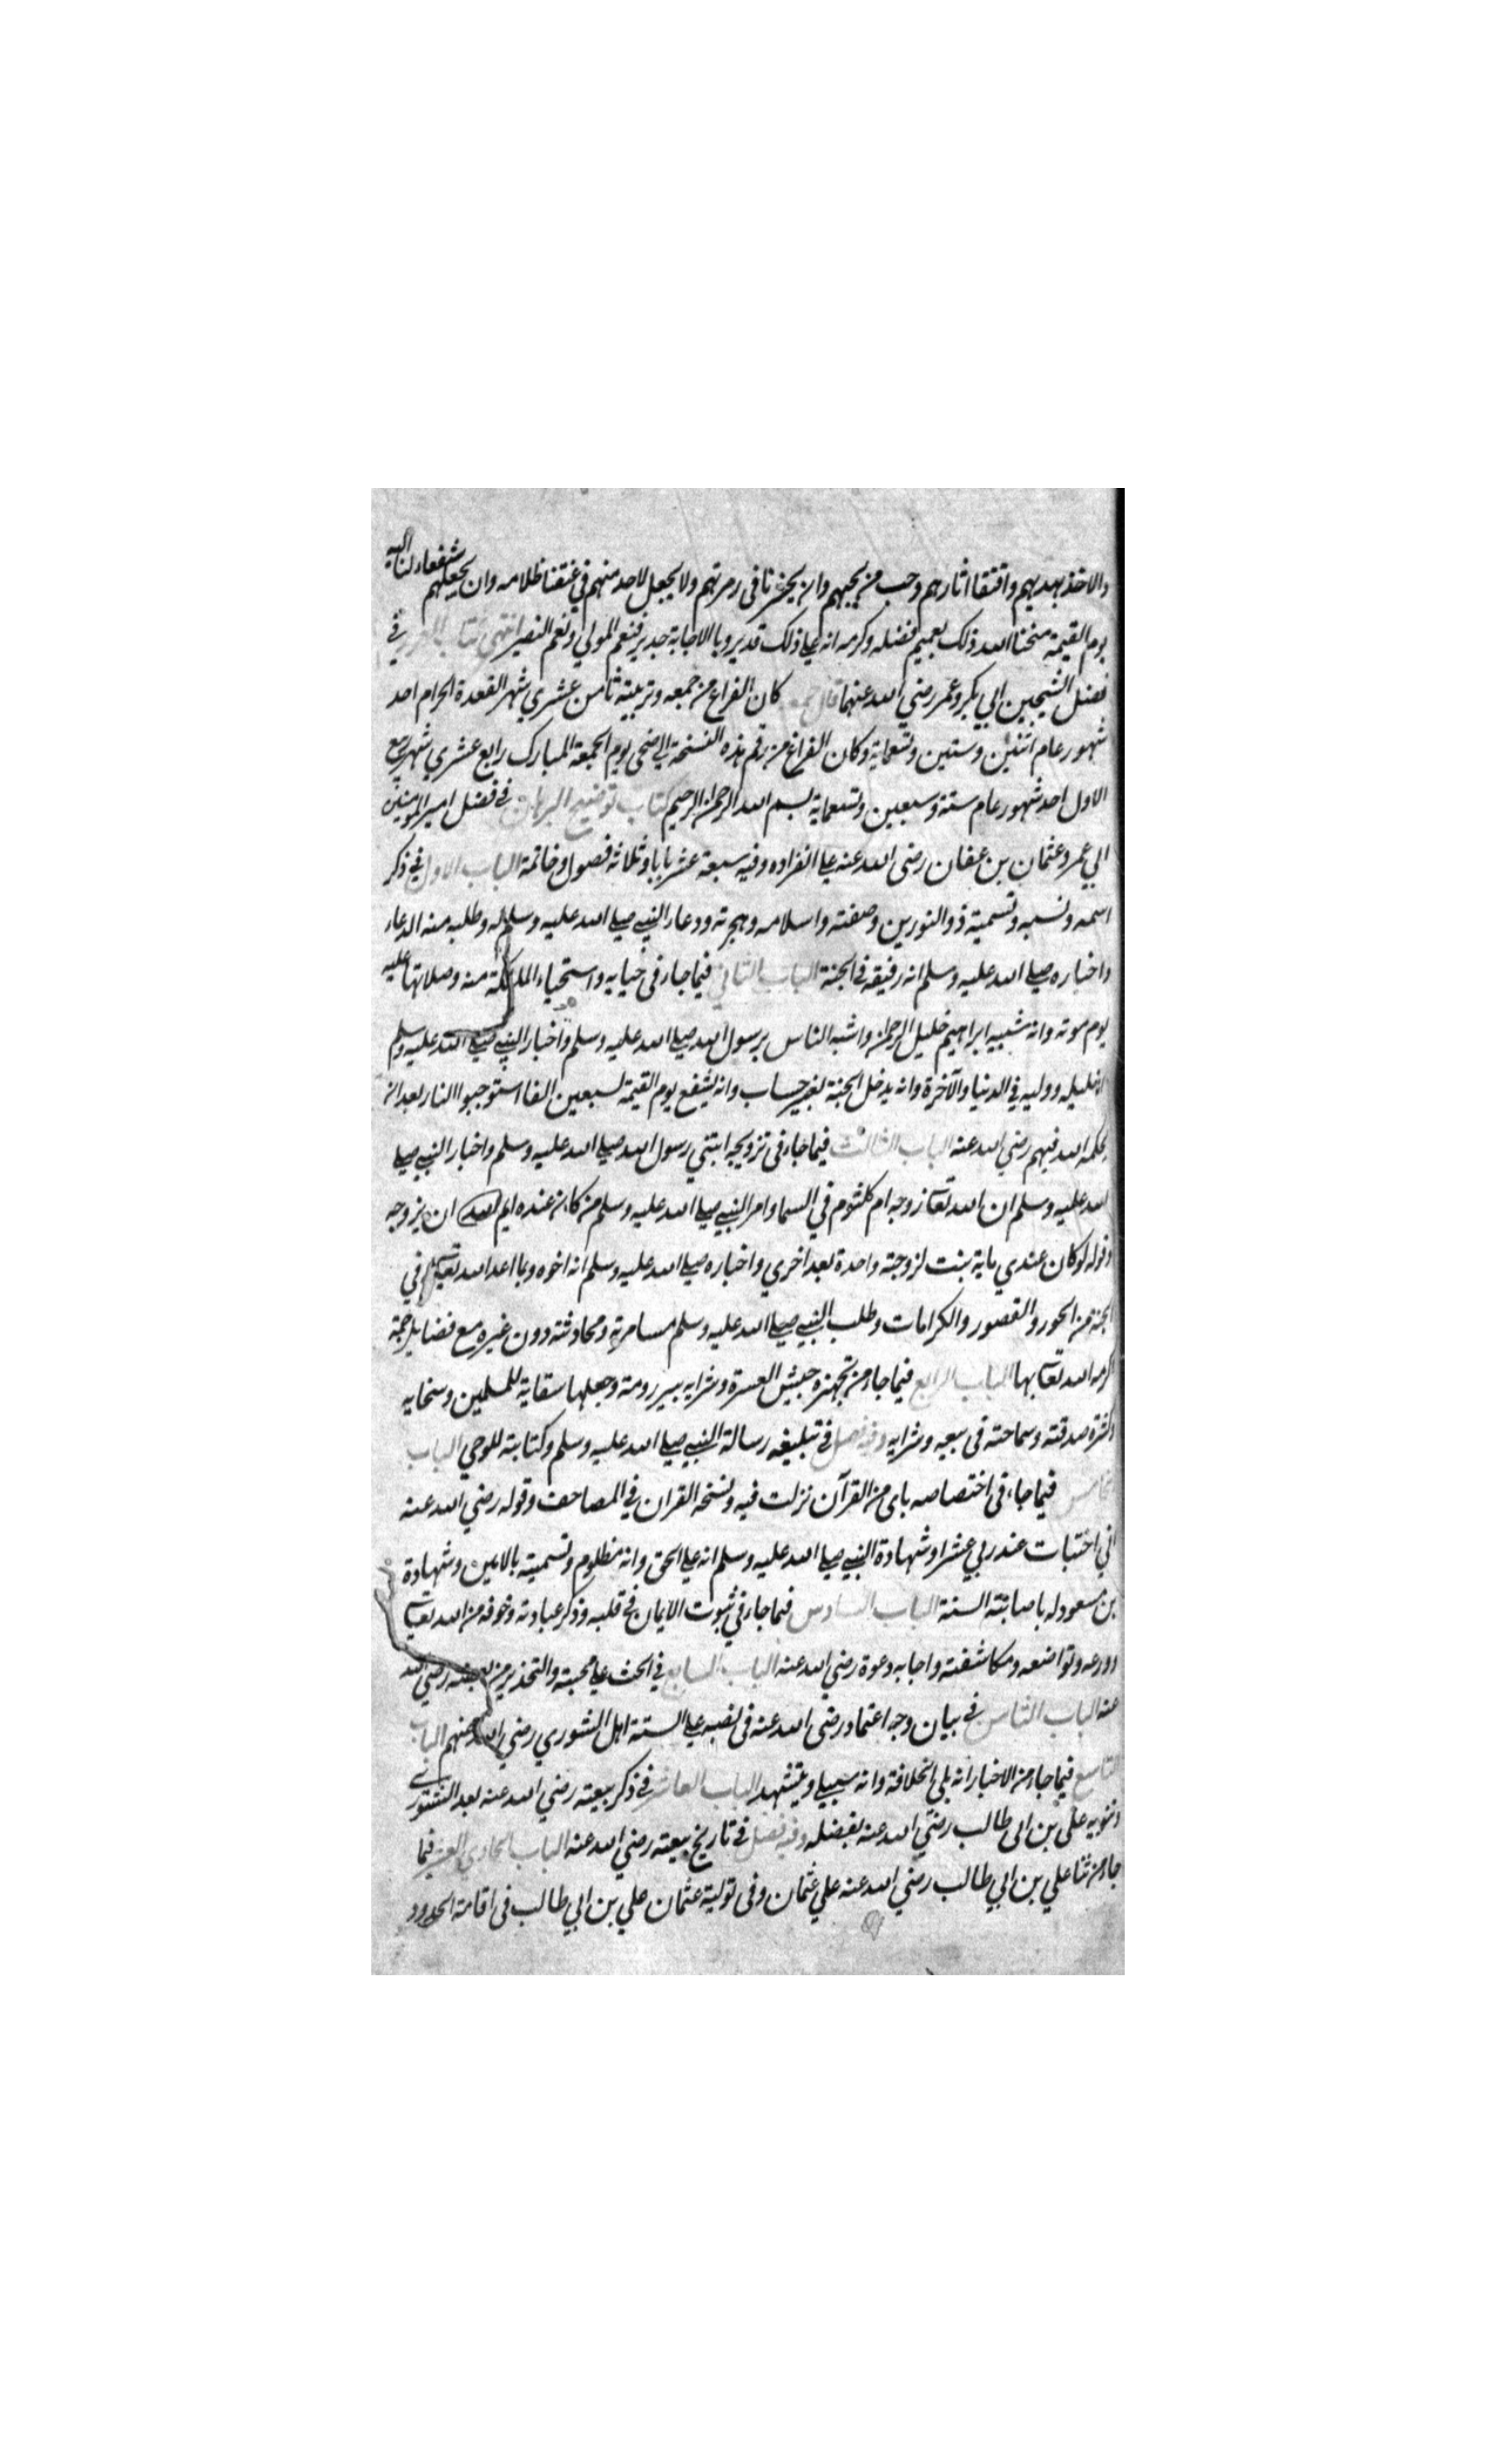 والاخذ بهديهم واقتفا اثارهم وحب من يحبهم وان يحشرنا فى زمرتهم ولا يجعل لاحد منهم في عنقنا ظلامه وان يجعلهم شفعاء لنا اليه
يوم القيمة منحنا الله ذلك بعميم فضله وكرمه انه علي ذلك قدير وبالاجابة جدير فنعم المولي ونعم النصير انتهي كتاب في
فضل الشيخين ابي بكر وعمر رضي الله عنهما قال كان الفراغ من جمعه وتربيته ثامن عشري شهر القعدة الحرام احد
شهور عام اثنين وستين وتسعماية وكان الفراغ من رقم هذه النسخة الي ضحى يوم الجمعة المبارك رابع عشري شهر ربيع
الاول احد شهور عام ستة وسبعين وتسعماية بسم الله الرحمن الرحيم كتاب توضيح البرهان في فضل امير المومنين
ابي عمرو عثمان بن عفان رضى الله عنه علي انفراده وفيه سبعة عشر بابا وثلاثة فصول وخاتمة الباب الاول في ذكر
اسمه ونسبه وتسمية ذو النورين وصفته واسلامه وهجرته ودعاء النبي صلي الله عليه وسلم له وطلبه منه الدعاء
واخباره صلي الله عليه وسلم انه رفيقه في الجنة الباب الثاني فيما جاء فى حيايه واستحياء الملئكة منه وصلاتها عليه
يوم موته وانه شبيه ابراهيم خليل الرحمن واشبه الناس برسول الله صلي الله عليه وسلم واخبار النبي صلي الله عليه وسلم
انه خليله ووليه في الدنيا والآخرة وانه يدخل الجنة بغير حساب وانه يشفع يوم القيمة لسبعين الفا استوجبوا النار بعد ان
يحكمه الله فيهم رضي الله عنه الباب الثالث فيما جاء فى تزويجه ابنتي رسول الله صلي الله عليه وسلم واخبار النبي صلي
الله عليه وسلم ان الله تعالى زوجه ام كلثوم في السما وامر النبي صلي الله عليه وسلم من كان عنده ايم ان يزوجه
وقوله لو كان عندي ماية بنت لزوجته واحدة بعد اخري واخباره صلي الله عليه وسلم انه اخوه وبما اعد الله تعالى له في
الجنة من الحور والقصور والكرامات وطلب النبي صلي الله عليه وسلم مسامرته ومحادثته دون غيره مع فضايل جمة
اكرمه الله تعالى بها الباب الرابع فيما جاء من تجهيزه جيش العسرة وشرايه بير رومة وجعلها سقاية للمسلمين وسخايه
وكثرة صدقته وسماحته فى بيعه وشرايه وفيه فصل في تبليغه رسالة النبي صلي الله عليه وسلم وكتابته للوحي الباب
الخامس فيما جاء فى اختصاصه باى من القرآن نزلت فيه ونسخه القران في المصاحف وقوله رضي الله عنه
اني اختبات عند ربي عشرا وشهادة النبي صلي الله عليه وسلم انه علي الحق وانه مظلوم وتسميته بالامين وشهادة
بن مسعود له باصابته السنة الباب السادس فيما جاء في ثبوت الايمان في قلبه وذكر عبادته وخوفه من الله تعالى
وورعه وتواضعه ومكاشفته واجابه دعوة رضي الله عنه الباب السابع في الحث علي محبته والتحذير من بغضه رضي الله
عنه الباب الثامن في بيان وجه اعتماد رضى الله عنه فى نصبه علي الستة اهل الشوري رضي الله عنهم الباب
التاسع فيما جاء من الاخبار انه يلي الخلافة وانه سيبلي ويستشهد الباب العاشر في ذكر بيعته رضي الله عنه بعد التشتور
وتنويه علي بن ابى طالب رضي الله عنه بفضله وفيه فصل في تاريخ بيعته رضي الله عنه الباب الحادي العشر فيما
جاء من ثنا علي بن ابي طالب رضي الله عنه علي عثمان وفى تولية عثمان علي بن ابي طالب فى اقامة الحدود